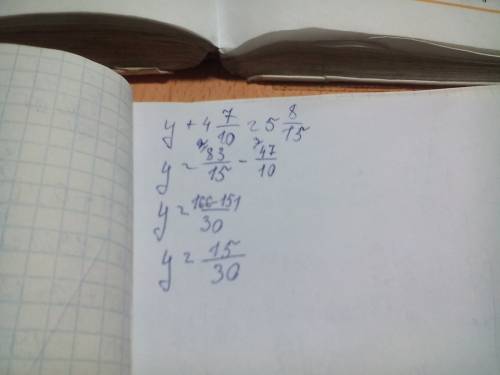 y + 4 7/10 = 5 8/15
y = 83/15 - 47/10
y = 166-151/30
y = 15/30